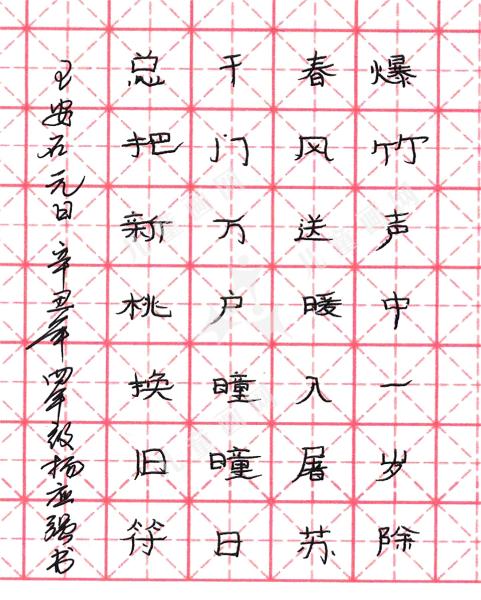 爆竹声中一岁除
春风送暖入屠苏
千门万户瞳瞳日
总把新桃换旧符
王安石元日辛丑年四年级杨应强书